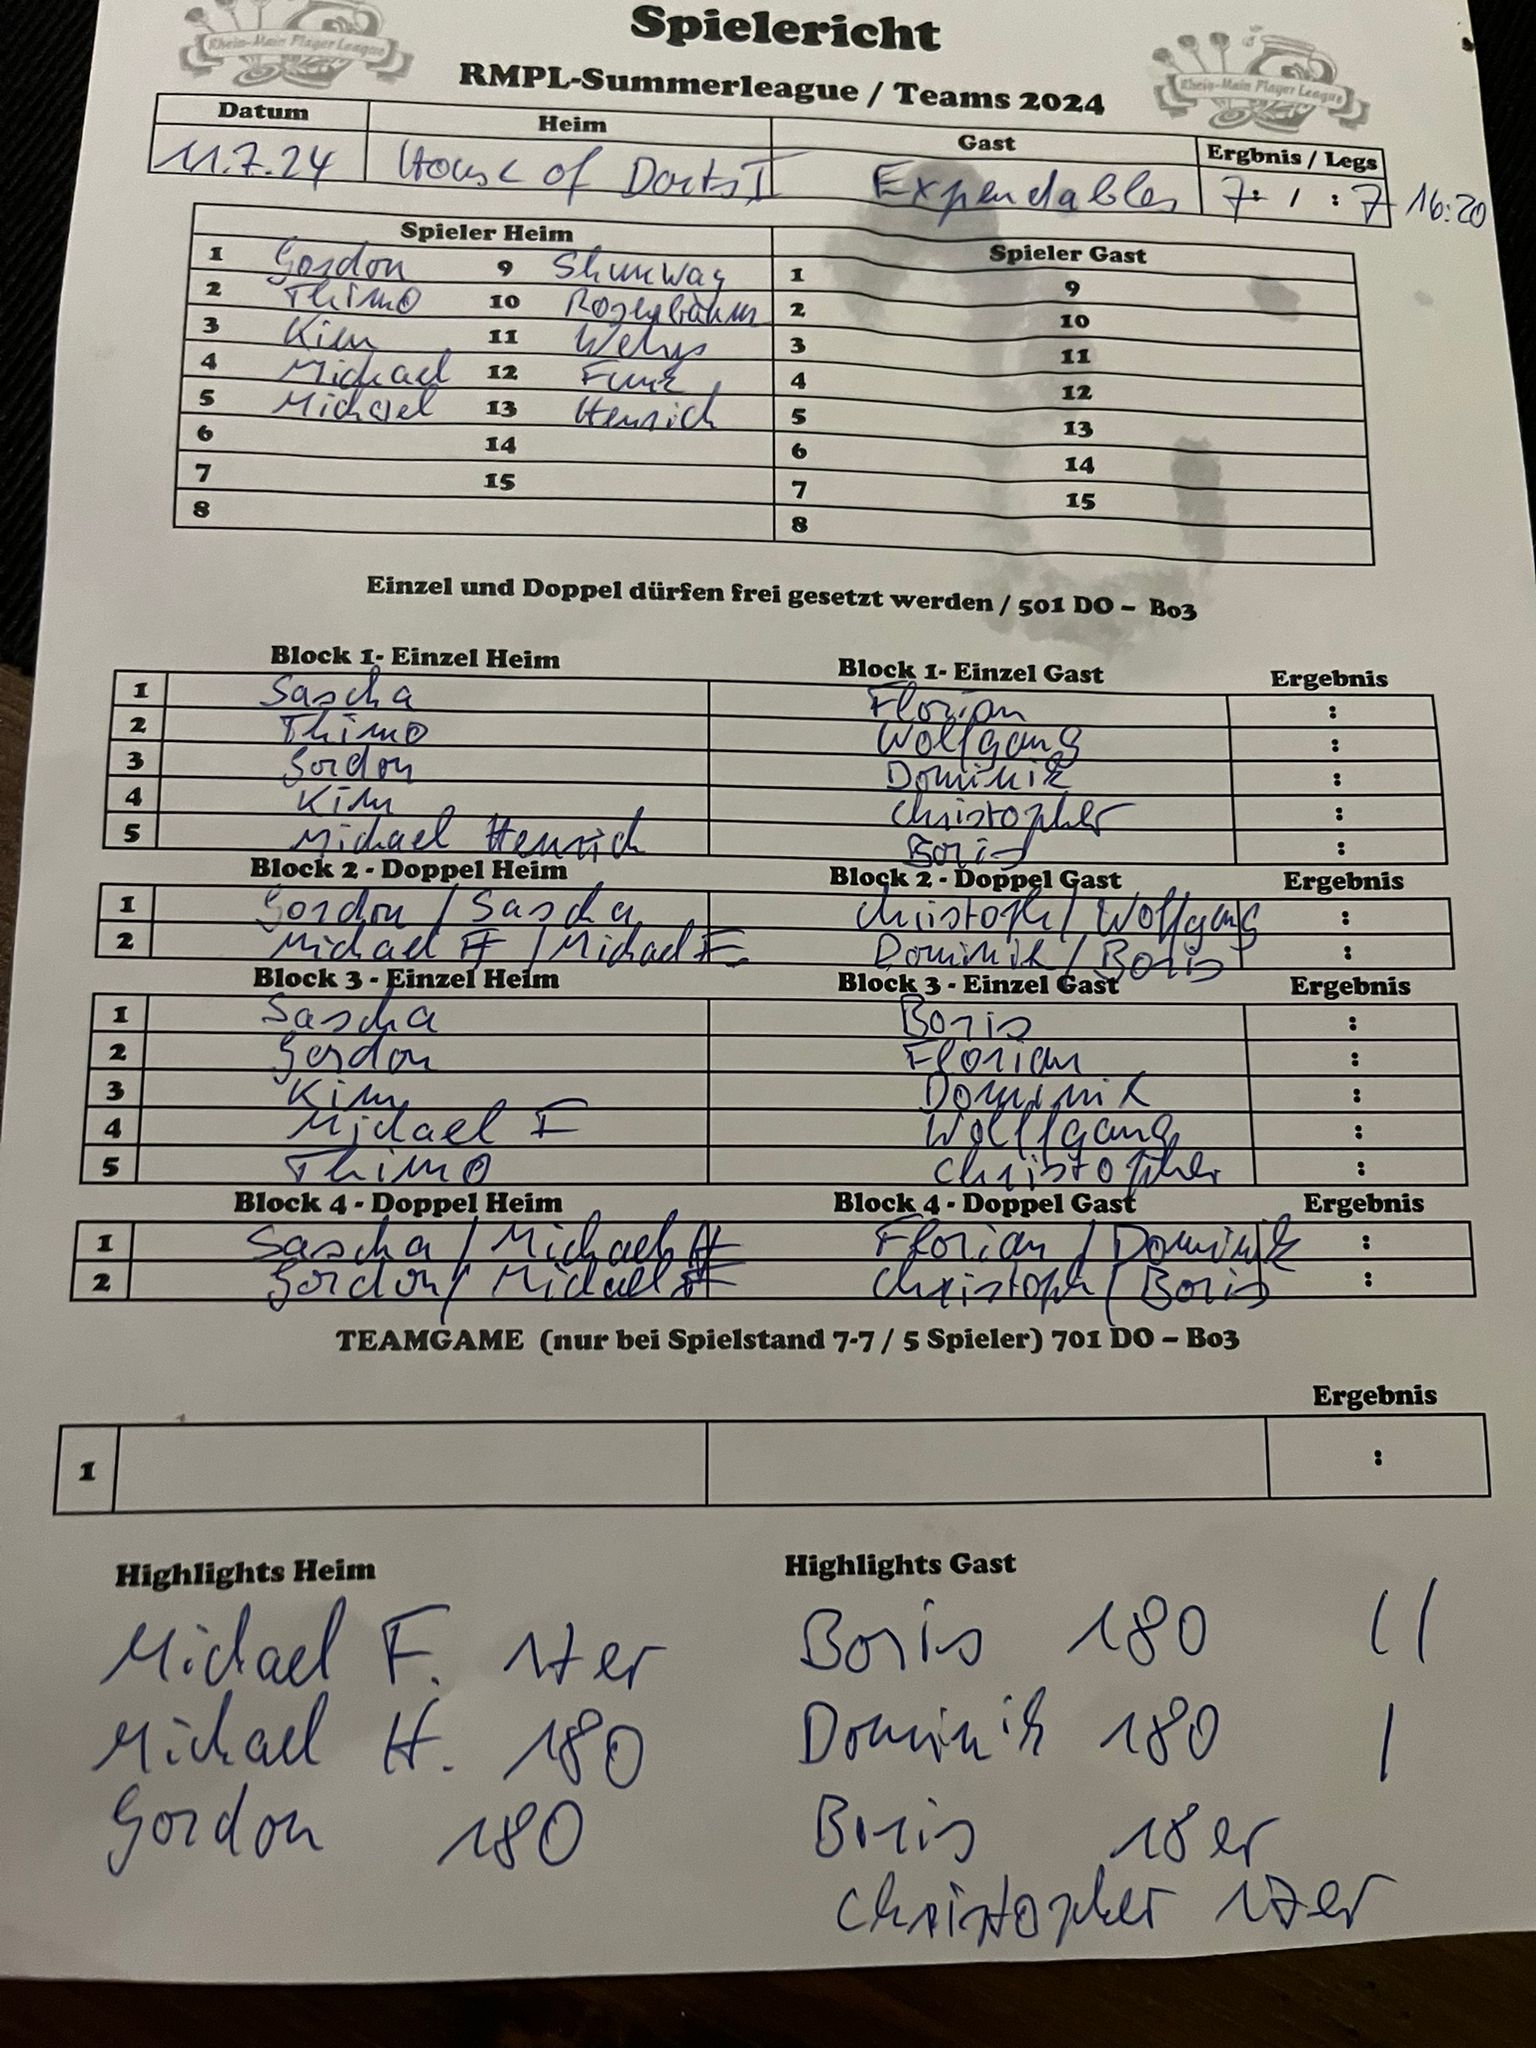 Spielericht
Rhein-Main Player League
Rhein-Main Player League
RMPL-Summerleague / Teams 2024
Datum Heim Gast Ergbnis / Legs
11.7.24 House of Darts I Expendables 7: / : 7 16:20
Spieler Heim Spieler Gast
1 Gordon 9 Shumway 1 9
2 Thimo 10 Rosenbaum 2 10
3 Kim 11 Wehys 3 11
4 Michael 12 Funk 4 12
5 Michael 13 Henrich 5 13
6 14 6 14
7 15 7 15
8 8
Einzel und Doppel dürfen frei gesetzt werden / 501 DO – Bo3
Block 1- Einzel Heim Block 1- Einzel Gast Ergebnis
1 Sascha Florian :
2 Thimo Wolfgang :
3 Gordon Dominik :
4 Kim Christopher :
5 Michael Henrich Boris :
Block 2 - Doppel Heim Block 2 - Doppel Gast Ergebnis
1 Gordon / Sascha Christoph / Wolfgang :
2 Michael H / Michael F. Dominik / Boris :
Block 3 - Einzel Heim Block 3 - Einzel Gast Ergebnis
1 Sascha Boris :
2 Gordon Florian :
3 Kim Dominik :
4 Michael F Wolfgang :
5 Thimo Christopher :
Block 4 - Doppel Heim Block 4 - Doppel Gast Ergebnis
1 Sascha / Michael H Florian / Dominik :
2 Gordon / Michael F Christoph / Boris :
TEAMGAME (nur bei Spielstand 7-7 / 5 Spieler) 701 DO – Bo3
Ergebnis
1 :
Highlights Heim Highlights Gast
Michael F. 17er Boris 180 ||
Michael H. 180 Dominik 180 |
Gordon 180 Boris 18er
Christopher 17er